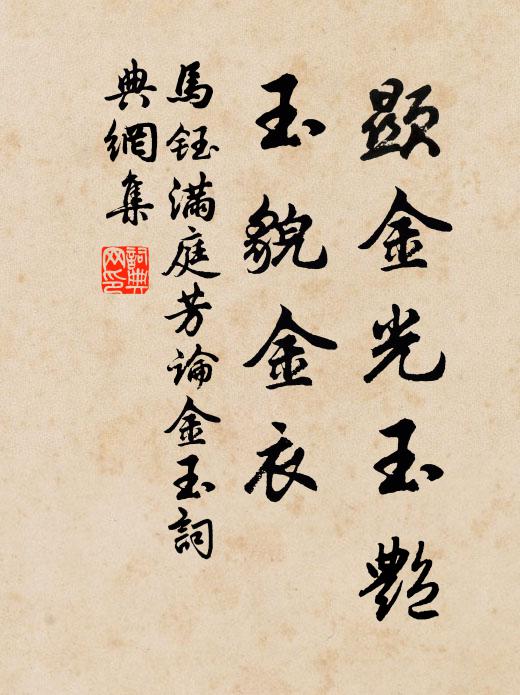 顯金光玉艷
玉貌金衣
馬鈺滿庭芳論金玉詞
典網集
詞典
网印